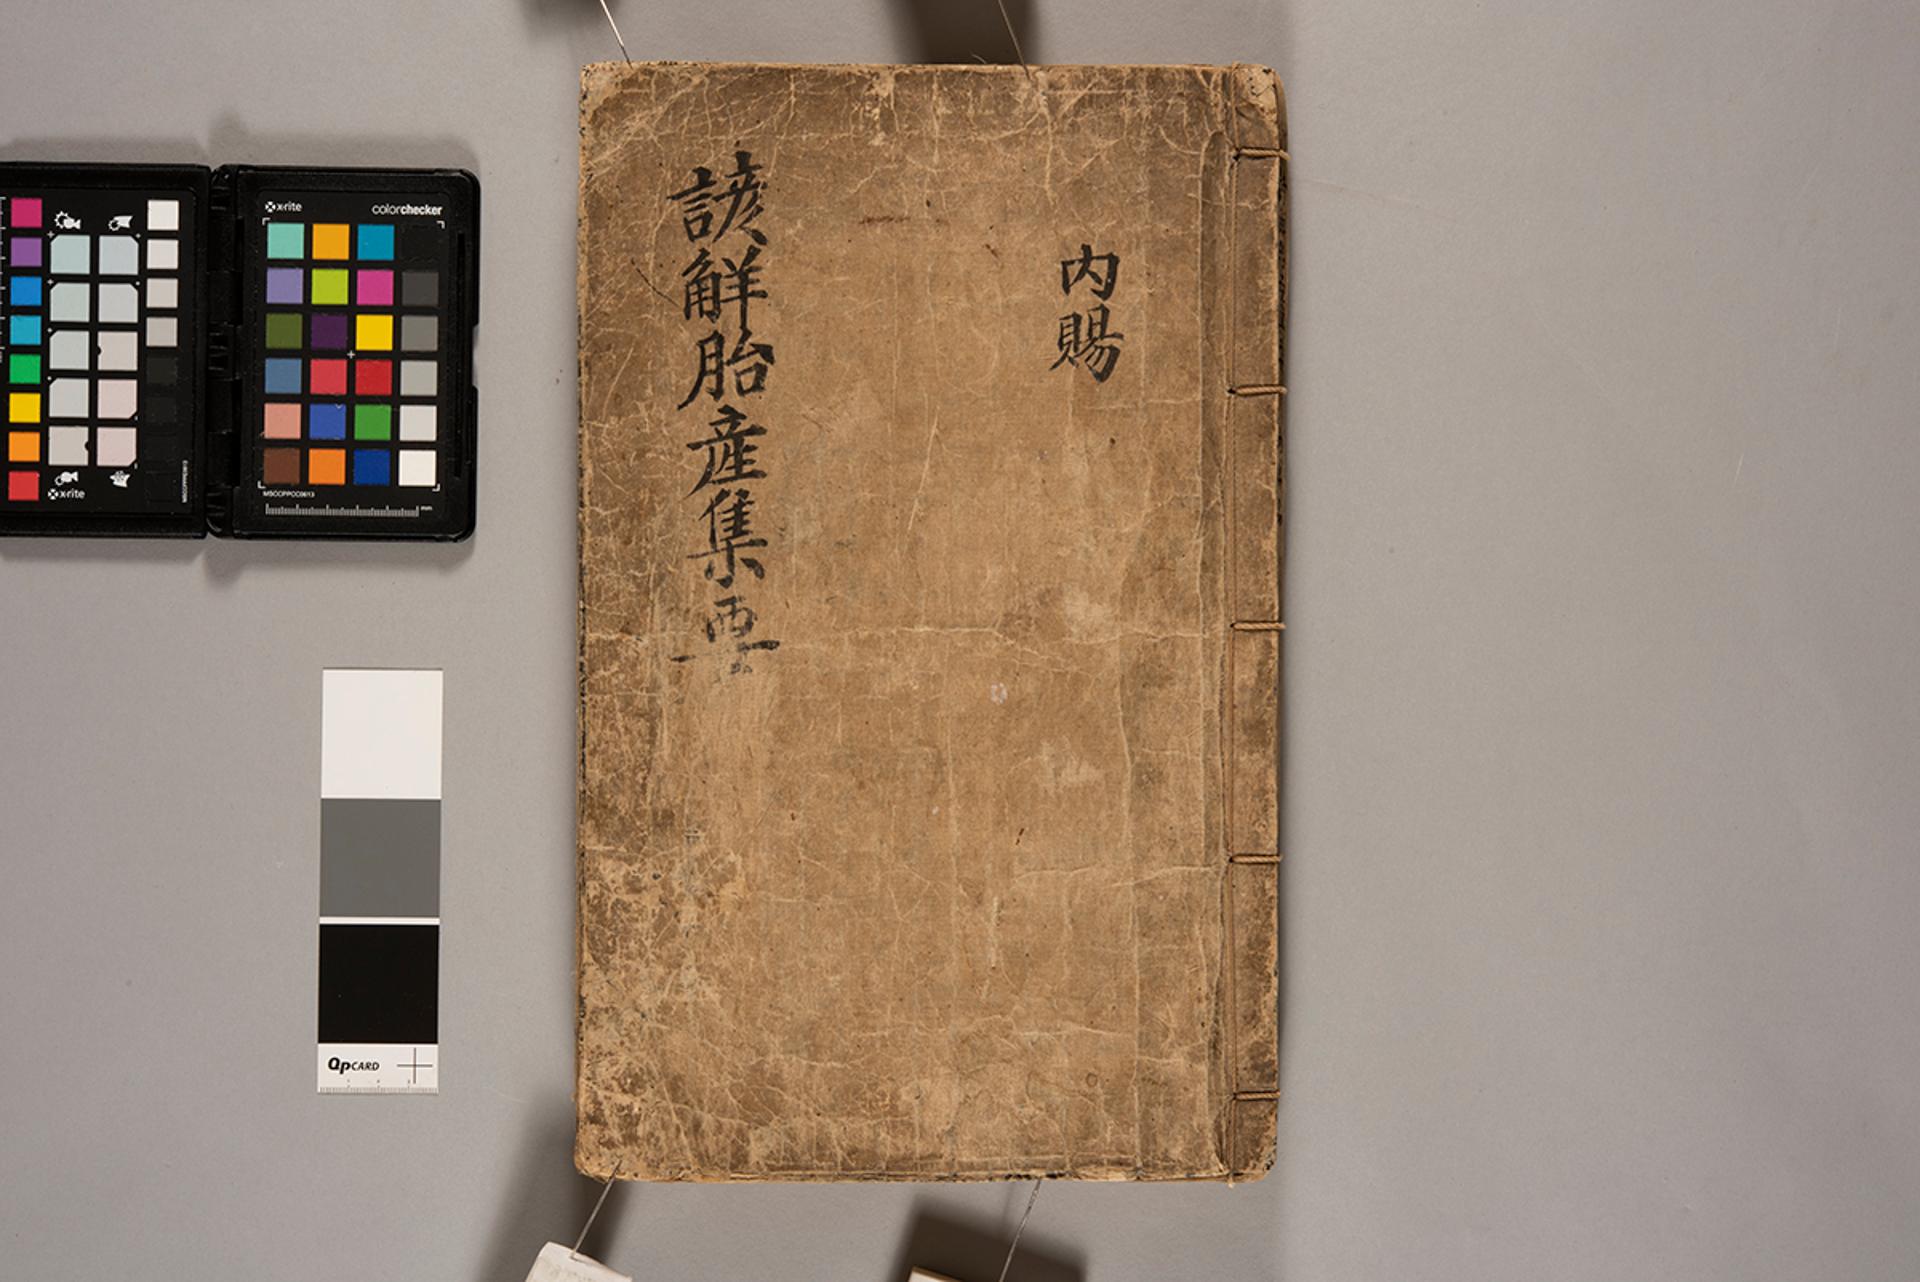 內賜
諺解胎産集要
x-rite
colorchecker
MSCCPPCC0613
mm
x-rite
QPCARD